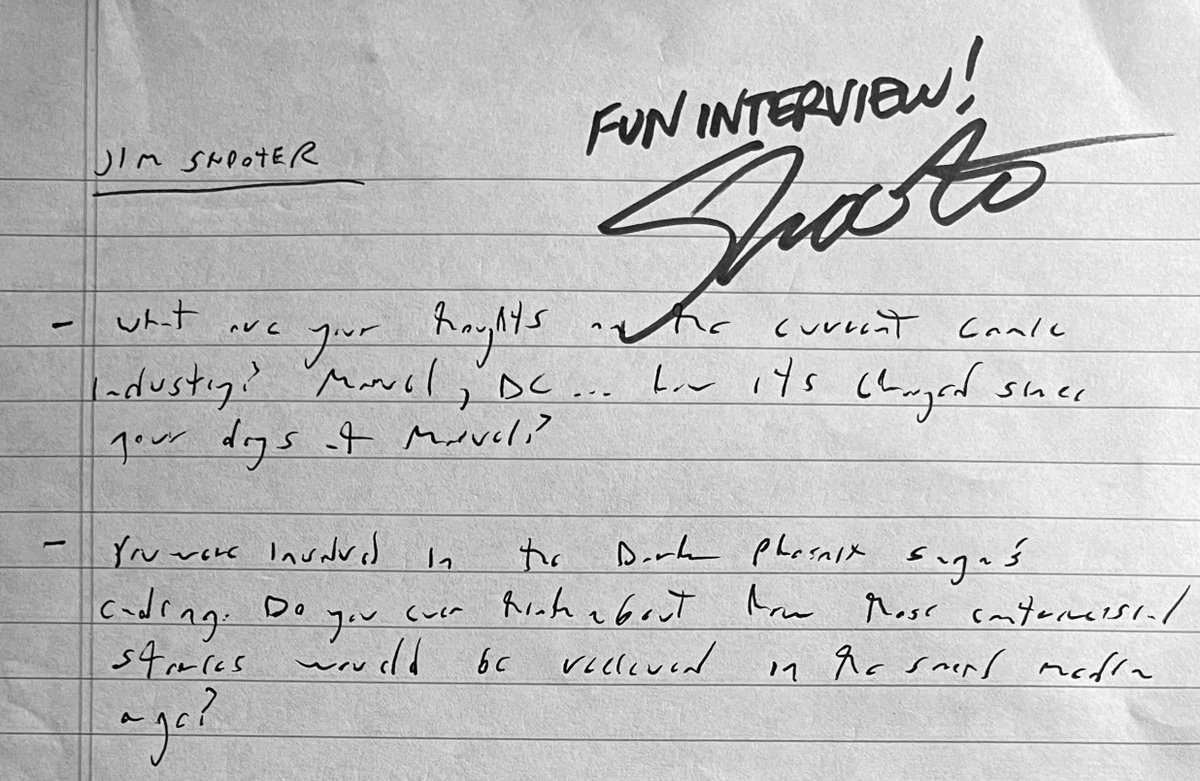 FUN INTERVIEW!
JIM SHOOTER
Shooter
- What are your thoughts on the current comic
industry? Marvel, DC... how it's changed since
your days at Marvel?
- You were involved in the Dark Phoenix Saga's
ending. Do you ever think about how those controversial
stories would be received in the social media
age?